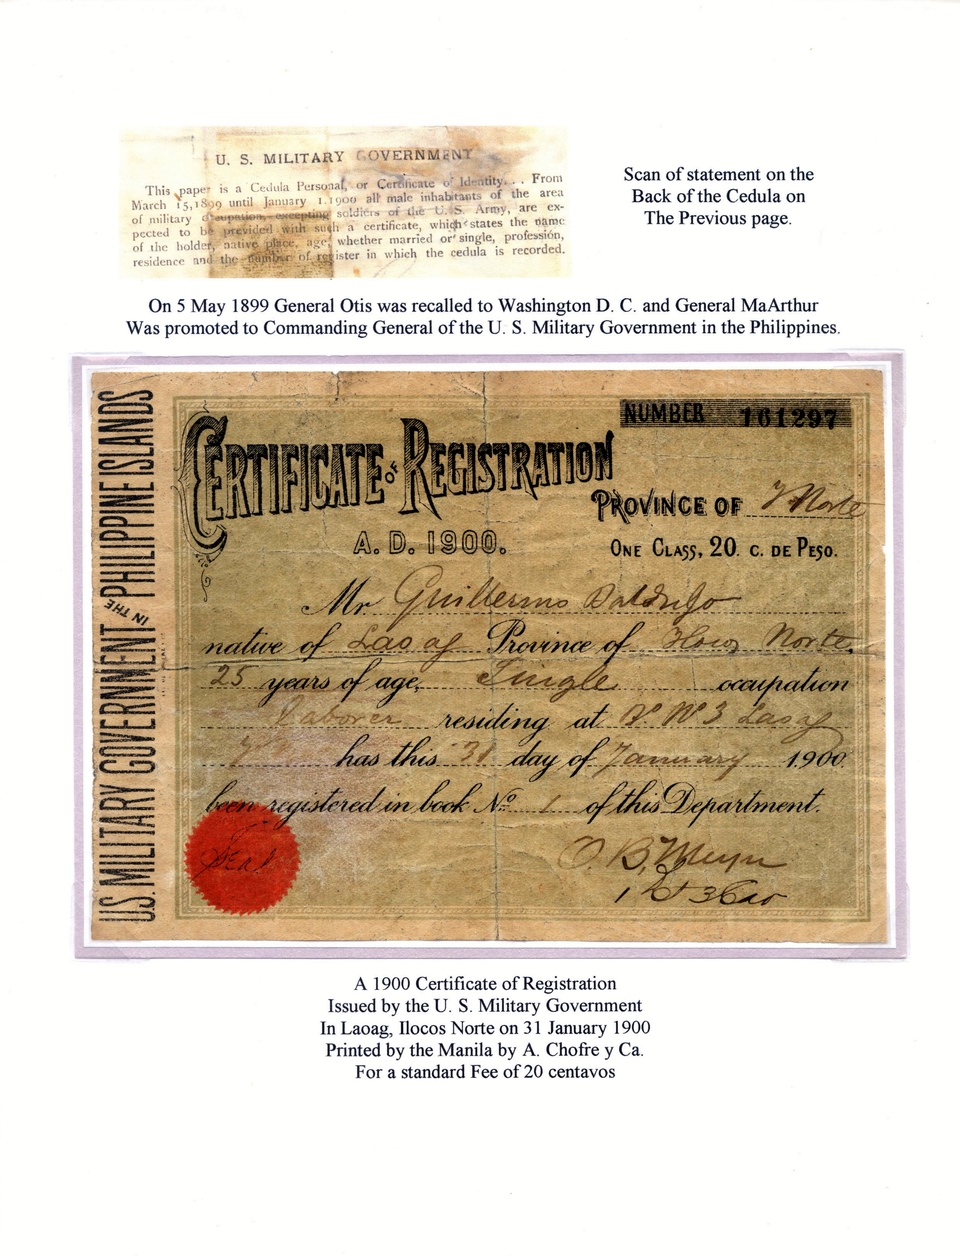 U. S. MILITARY GOVERNMENT
This paper is a Cedula Personal, or Certificate of Identity. . . From
March 15, 1899 until January 1. 1900 all male inhabitants of the area
of military occupation, excepting soldiers of the U. S. Army, are ex-
pected to be provided with such a certificate, which states the name
of the holder, native place, age, whether married or single, profession,
residence and the number of register in which the cedula is recorded.
Scan of statement on the
Back of the Cedula on
The Previous page.
On 5 May 1899 General Otis was recalled to Washington D. C. and General MaArthur
Was promoted to Commanding General of the U. S. Military Government in the Philippines.
U.S. MILITARY GOVERNMENT IN THE PHILIPPINE ISLANDS
NUMBER 161297
CERTIFICATE OF REGISTRATION
PROVINCE OF Y Norte
A. D. 1900.
ONE CLASS, 20. C. DE PESO.
Mr Guillermo
native of Laoag Province of Ilocos Norte.
25 years of age, Single occupation
laborer residing at Laoag
has this 31 day of January 1900.
been registered in book No. 1 of this Department.
Seal
O. B. Meyer
1 Lt
A 1900 Certificate of Registration
Issued by the U. S. Military Government
In Laoag, Ilocos Norte on 31 January 1900
Printed by the Manila by A. Chofre y Ca.
For a standard Fee of 20 centavos